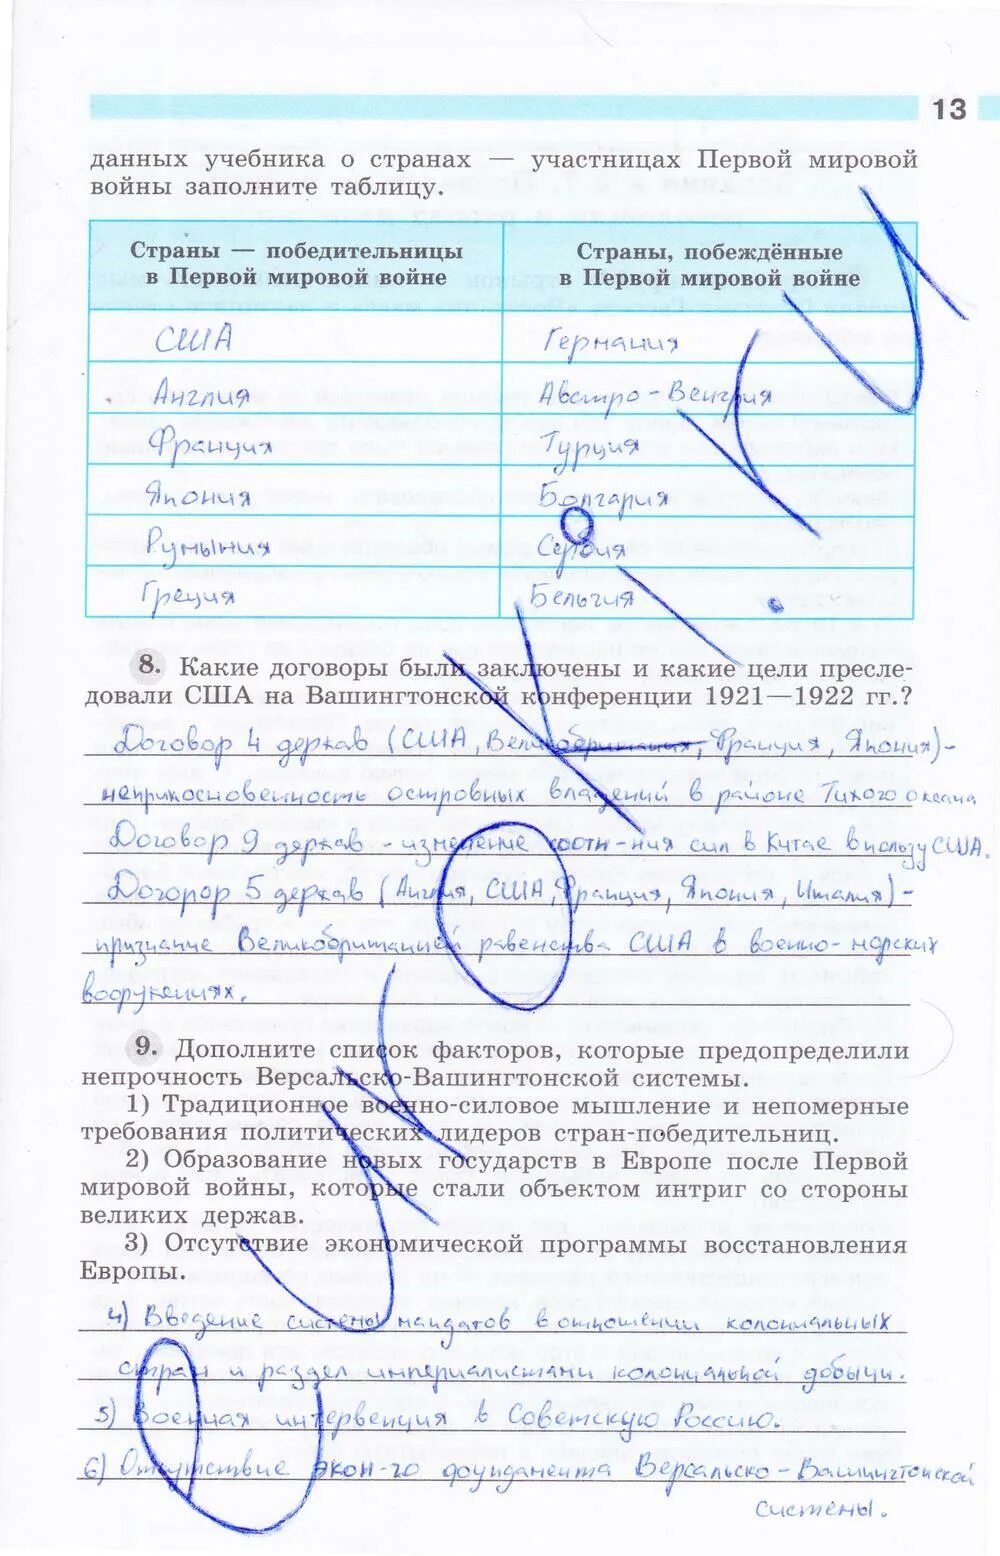 13
данных учебника о странах — участницах Первой мировой
войны заполните таблицу.
Страны — победительницы
в Первой мировой войне
Страны, побеждённые
в Первой мировой войне
США
Германия
Англия
Австро-Венгрия
Франция
Турция
Япония
Болгария
Румыния
Сербия
Греция
Бельгия
8. Какие договоры были заключены и какие цели пресле-
довали США на Вашингтонской конференции 1921—1922 гг.?
Договор 4 держав (США, Великобритания, Франция, Япония) -
неприкосновенность островных владений в районе Тихого океана
Договор 9 держав - изменение соотн-ния сил в Китае в пользу США.
Догорор 5 держав (Англия, США, Франция, Япония, Италия) -
признание Великобританией равенства США в военно-морских
вооружениях.
9. Дополните список факторов, которые предопределили
непрочность Версальско-Вашингтонской системы.
1) Традиционное военно-силовое мышление и непомерные
требования политических лидеров стран-победительниц.
2) Образование новых государств в Европе после Первой
мировой войны, которые стали объектом интриг со стороны
великих держав.
3) Отсутствие экономической программы восстановления
Европы.
4) Введение системы мандатов в отношении колониальных
стран и раздел империалистами колониальной добычи.
5) Военная интервенция в Советскую Россию.
6) Отсутствие экон-го фундамента Версальско-Вашингтонской
системы.